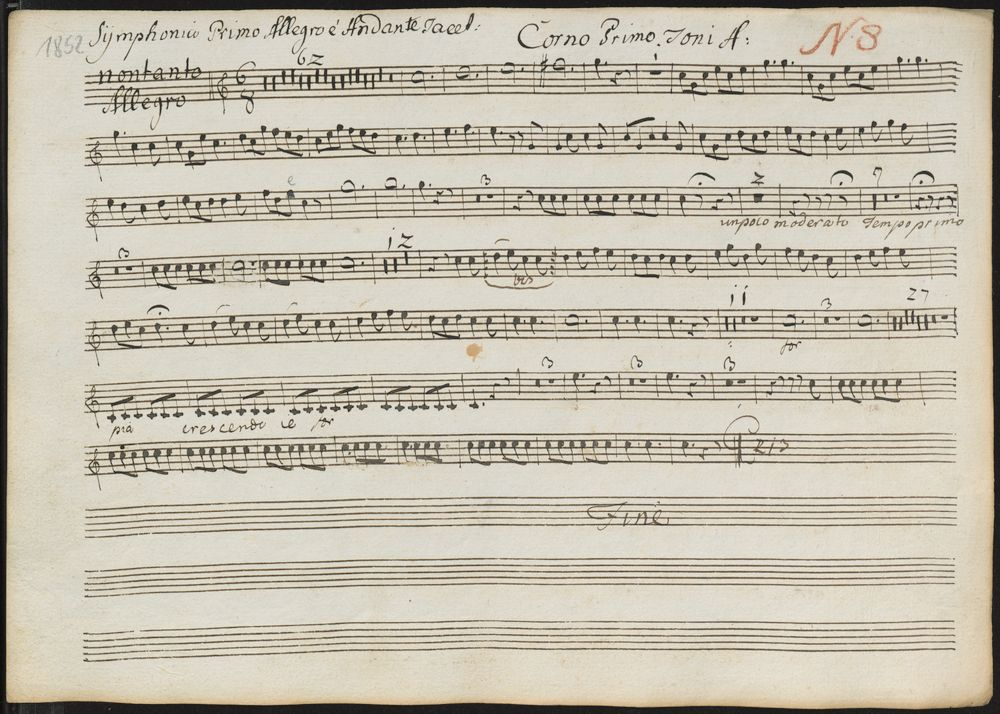 1852 Symphonia Primo Allegro é Andante Tacet: Corno Primo. Toni A: N. 8
non tanto
Allegro
6
8
62
1
e 3 2 7
un poco moderato Tempo primo
3 12
bis
11 3 27
for
3 3 3
pia crescendo é for
213
Fine